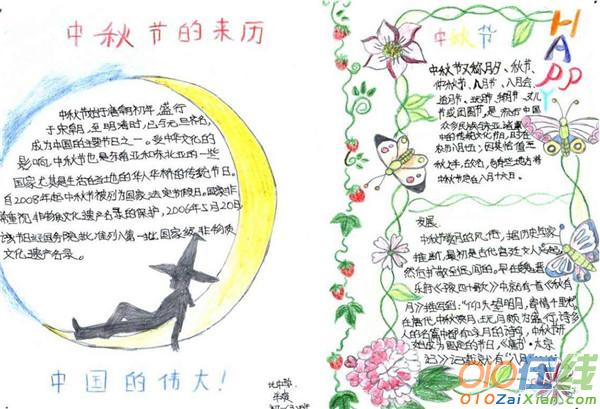 中秋节的来历
中秋节始于唐朝初年，盛行
于宋朝，至明清时，已与元旦齐名，
成为中国的主要节日之一。受中华文化的
影响，中秋节也是东南亚和东北亚的一些
国家尤其是生活在当地的华人华侨的传统节日。
自2008年起中秋节被列为国家法定节假日。国家非
常重视非物质文化遗产名录的保护，2006年5月20日，
该节日经国务院批准列入第一批国家级非物质
文化遗产名录。
中国的伟大！
中秋节
HAPPY
中秋节又称月夕、秋节、
仲秋节、八月节、八月会、
追月节、玩月节、拜月节、女儿节
或团圆节，是流行于中国
众多民族与
的传统文化节日，时在
农历八月十五；因其恰值三
秋之半，故名，也有些地方将
中秋节定在八月十六日。
发展：
中秋节赏月的风俗，据历史学家
推断，最初是古代宫廷文人兴起，
然后扩散至民间的。早在魏晋
乐府《子夜四十歌》中，就有《秋有
月》描写到：“仰头望明月，寄情千里光”。
在唐代，中秋赏月、玩月颇为盛行，许多
人的名篇中都有咏月的诗句，中秋节开
始成为固定的节日，《唐书·太宗
记》记载有“八月
010在线
010ZaiXian.com